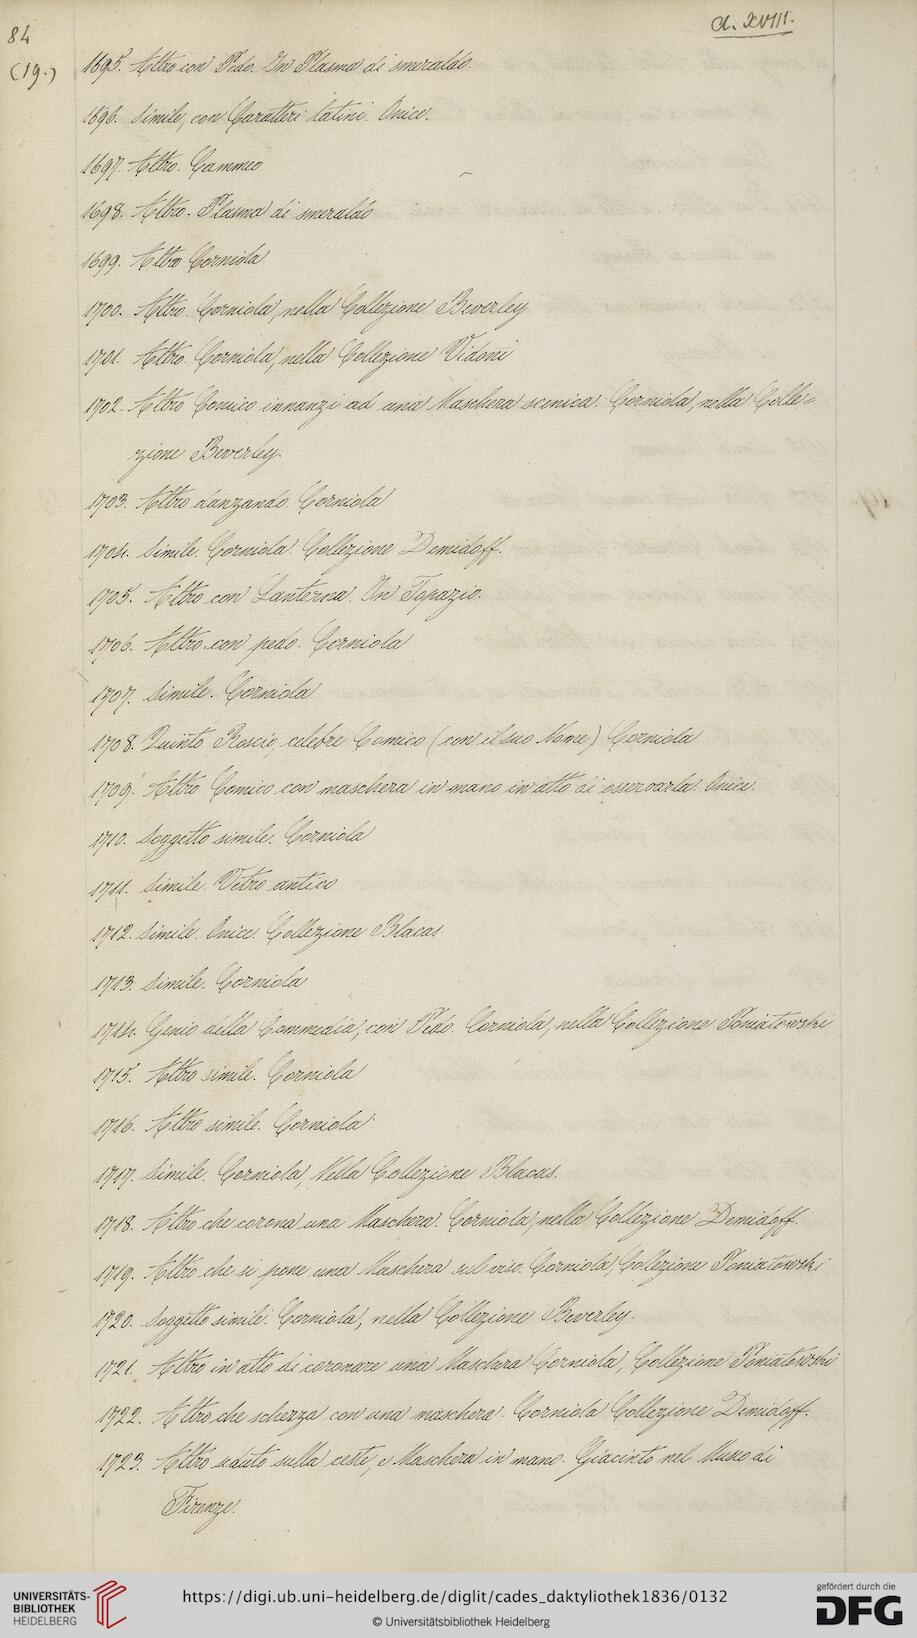 84
Cl. XVIII.
(19.)
1695. Altro con Pedo. In Plasma di smeraldo.
1696. Simile, con Caratteri latini. Onice.
1697. Altro. Cammeo
1698. Altro. Plasma di smeraldo
1699. Altro Corniola
1700. Altro. Corniola, nella Collezione Beverley
1701. Altro. Corniola, nella Collezione Vidoni
1702. Altro Comico innanzi ad una Maschera scenica. Corniola, nella Colle=
zione Beverley.
1703. Altro danzando. Corniola
1704. Simile. Corniola. Collezione Demidoff.
1705. Altro con Lanterna. In Topazio.
1706. Altro con pedo. Corniola
1707. Simile. Corniola
1708. Quinto Roscio, celebre Comico (con il suo Nome) Corniola
1709. Altro Comico con maschera in mano in atto di osservarla. Onice.
1710. Soggetto simile. Corniola
1711. Simile. Vetro antico
1712. Simile. Onice. Collezione Blacas
1713. Simile. Corniola
1714. Genio della Commedia, con Pedo. Corniola, nella Collezione Poniatowski
1715. Altro simile. Corniola
1716. Altro simile. Corniola
1717. Simile. Corniola, Nella Collezione Blacas.
1718. Altro che corona una Maschera. Corniola, nella Collezione Demidoff.
1719. Altro che si pone una Maschera sul viso. Corniola, Collezione Poniatowski
1720. Soggetto simile. Corniola, nella Collezione Beverley.
1721. Altro in atto di coronare una Maschera Corniola, Collezione Poniatowski
1722. Altro che scherza con una maschera. Corniola Collezione Demidoff.
1723. Altro seduto sulla ceste, e Maschera in mano. Giacinto nel Museo di
Firenze.
UNIVERSITÄTS-
BIBLIOTHEK
HEIDELBERG
https://digi.ub.uni-heidelberg.de/diglit/cades_daktyliothek1836/0132
© Universitätsbibliothek Heidelberg
gefördert durch die
DFG